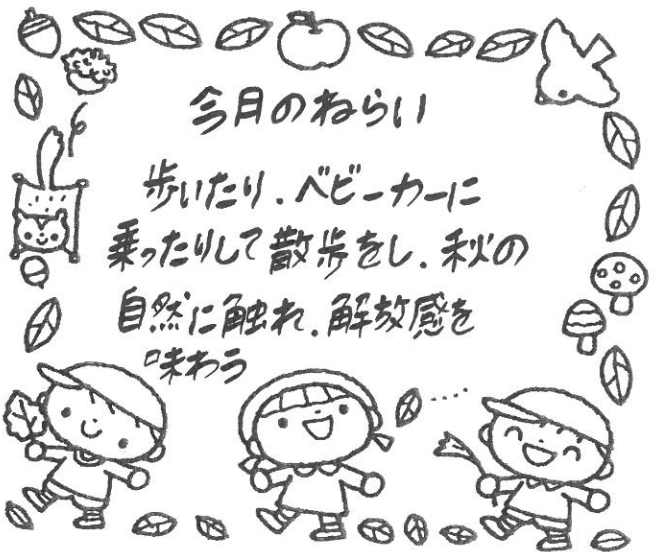 今月のねらい
歩いたり、ベビーカーに
乗ったりして散歩をし、秋の
自然に触れ、解放感を
味わう